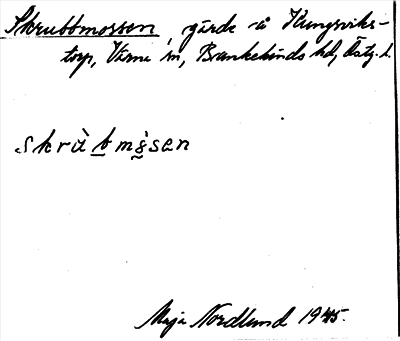 Skrubbmossen, gärde å Kungsviks-
torp, Värna sn, Bankekinds hd, Östg. l.
skrù b mò̤sen
Maja Nordlund 1945.